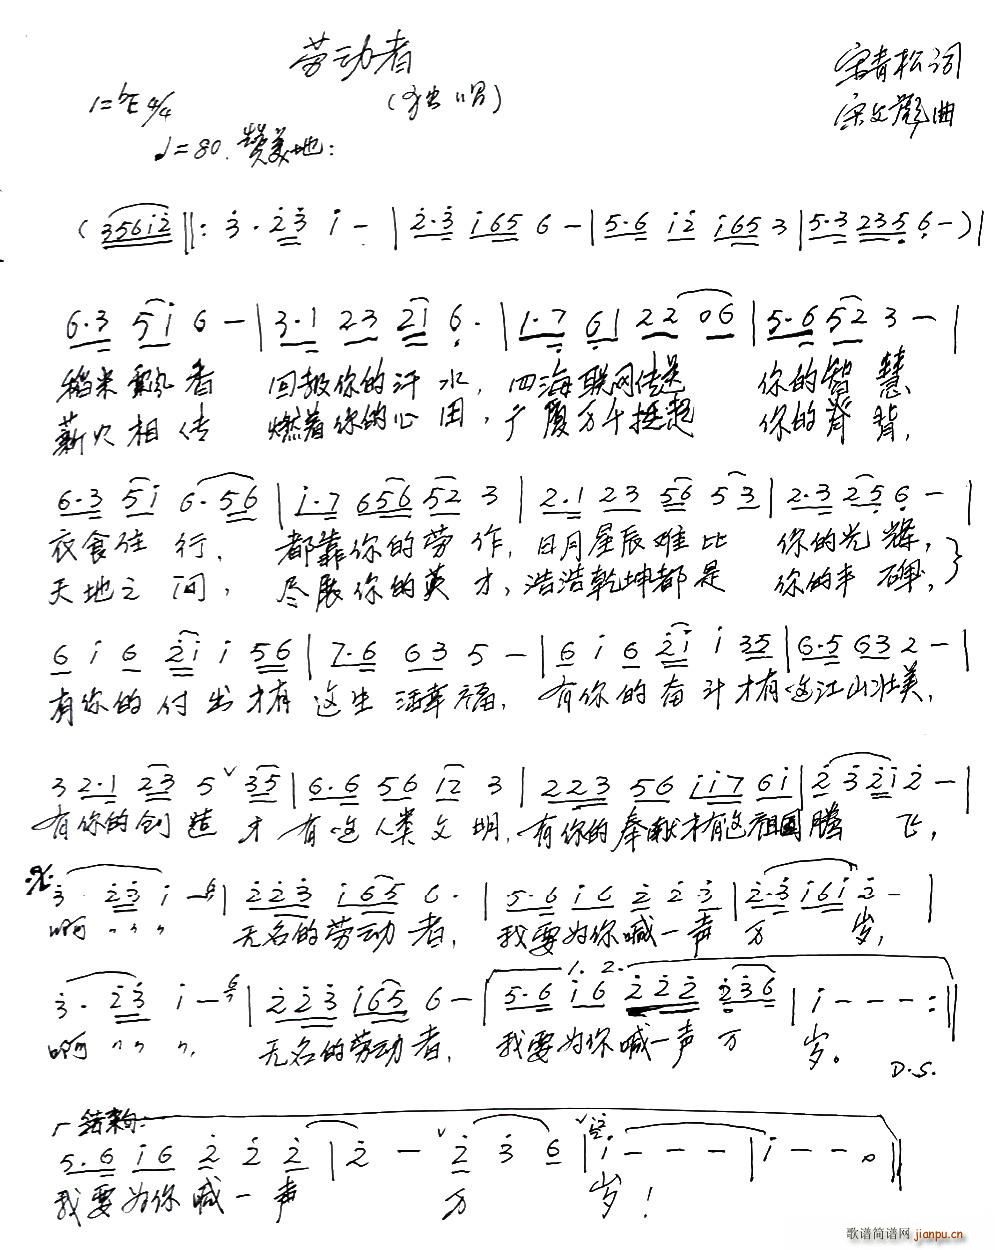 劳动者
(独唱)
宋青松词
宋文彪曲
1=♭E 4/4
♩=80. 赞美地:
(356i̇2̇ ‖: 3̇·2̇3̇ i̇ - | 2̇·3̇ i̇65 6 - | 5·6 i̇2̇ i̇65 3 | 5·3 235̣ 6̣ -) |
6·3 5i̇ 6 - | 3·1 23 21 6̣· | 1·7̣ 6̣1 22 06 | 5·6 52 3 - |
稻米飘香 回报你的汗水, 四海联网传递 你的智慧、
薪火相传 燃着你的心田, 广厦万千挺起 你的脊背,
6·3 5i̇ 6·56 | i̇·7 656 52 3 | 2·1 23 56 53 | 2·3 25̣ 6̣ - |
衣食住行, 都靠你的劳作, 日月星辰难比 你的光辉,
天地之间, 尽展你的英才, 浩浩乾坤都是 你的丰碑,}
6 i̇ 6 2̇i̇ i̇ 56 | 7·6 63 5 - | 6 i̇ 6 2̇i̇ i̇ 35 | 6·5 63 2 - |
有你的付出才有这生活幸福, 有你的奋斗才有这江山壮美,
3 2·1 23 5 ˅ 35 | 6·6 56 i̇2̇ 3 | 223 56 i̇i̇7 6i̇ | 2̇ 3̇ 2̇i̇ 2̇ - |
有你的创造 才有这人类文明, 有你的奉献才有这祖国腾飞,
3̇ 2̇3̇ i̇ - | 2̇2̇3̇ i̇65 6· | 5·6 i̇6 2̇ 2̇ 3̇ | 2̇·3̇ i̇6i̇ 2̇ - |
啊 〃〃〃 无名的劳动者, 我要为你喊一声万岁,
3̇·2̇3̇ i̇ - | 2̇2̇3̇ i̇65 6 - | 1. 2. 5·6 i̇6 2̇2̇2̇ 2̇36 | i̇ - - - :‖
啊 〃〃〃, 无名的劳动者, 我要为你喊一声万岁。
D.S.
结束句:
5·6 i̇6 2̇ 2̇ 2̇ | 2̇ - ˅ 2̇ 3̇ 6 | ˅ i̇ - - - | i̇ - - 0 ‖
我要为你喊一声 万 岁!
歌谱简谱网 jianpu.cn